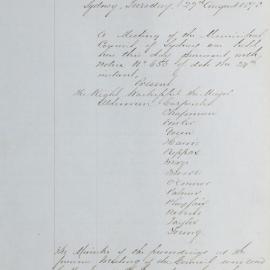 Sydney, Tuesday 27th August 1878
A Meeting of the Municipal
Council of Sydney was held
here this day, pursuant with
Notice No 653 of date the 24th
instant,
Present
The Right Worshipful the Mayor
Aldermen Carpenter
Chapman
Fowler
Green
Harris
Kippax
Moore
O'Connor
Palmer
Playfair
Roberts
Taylor
Young
The Minutes of the proceedings at the
Meeting of the Council